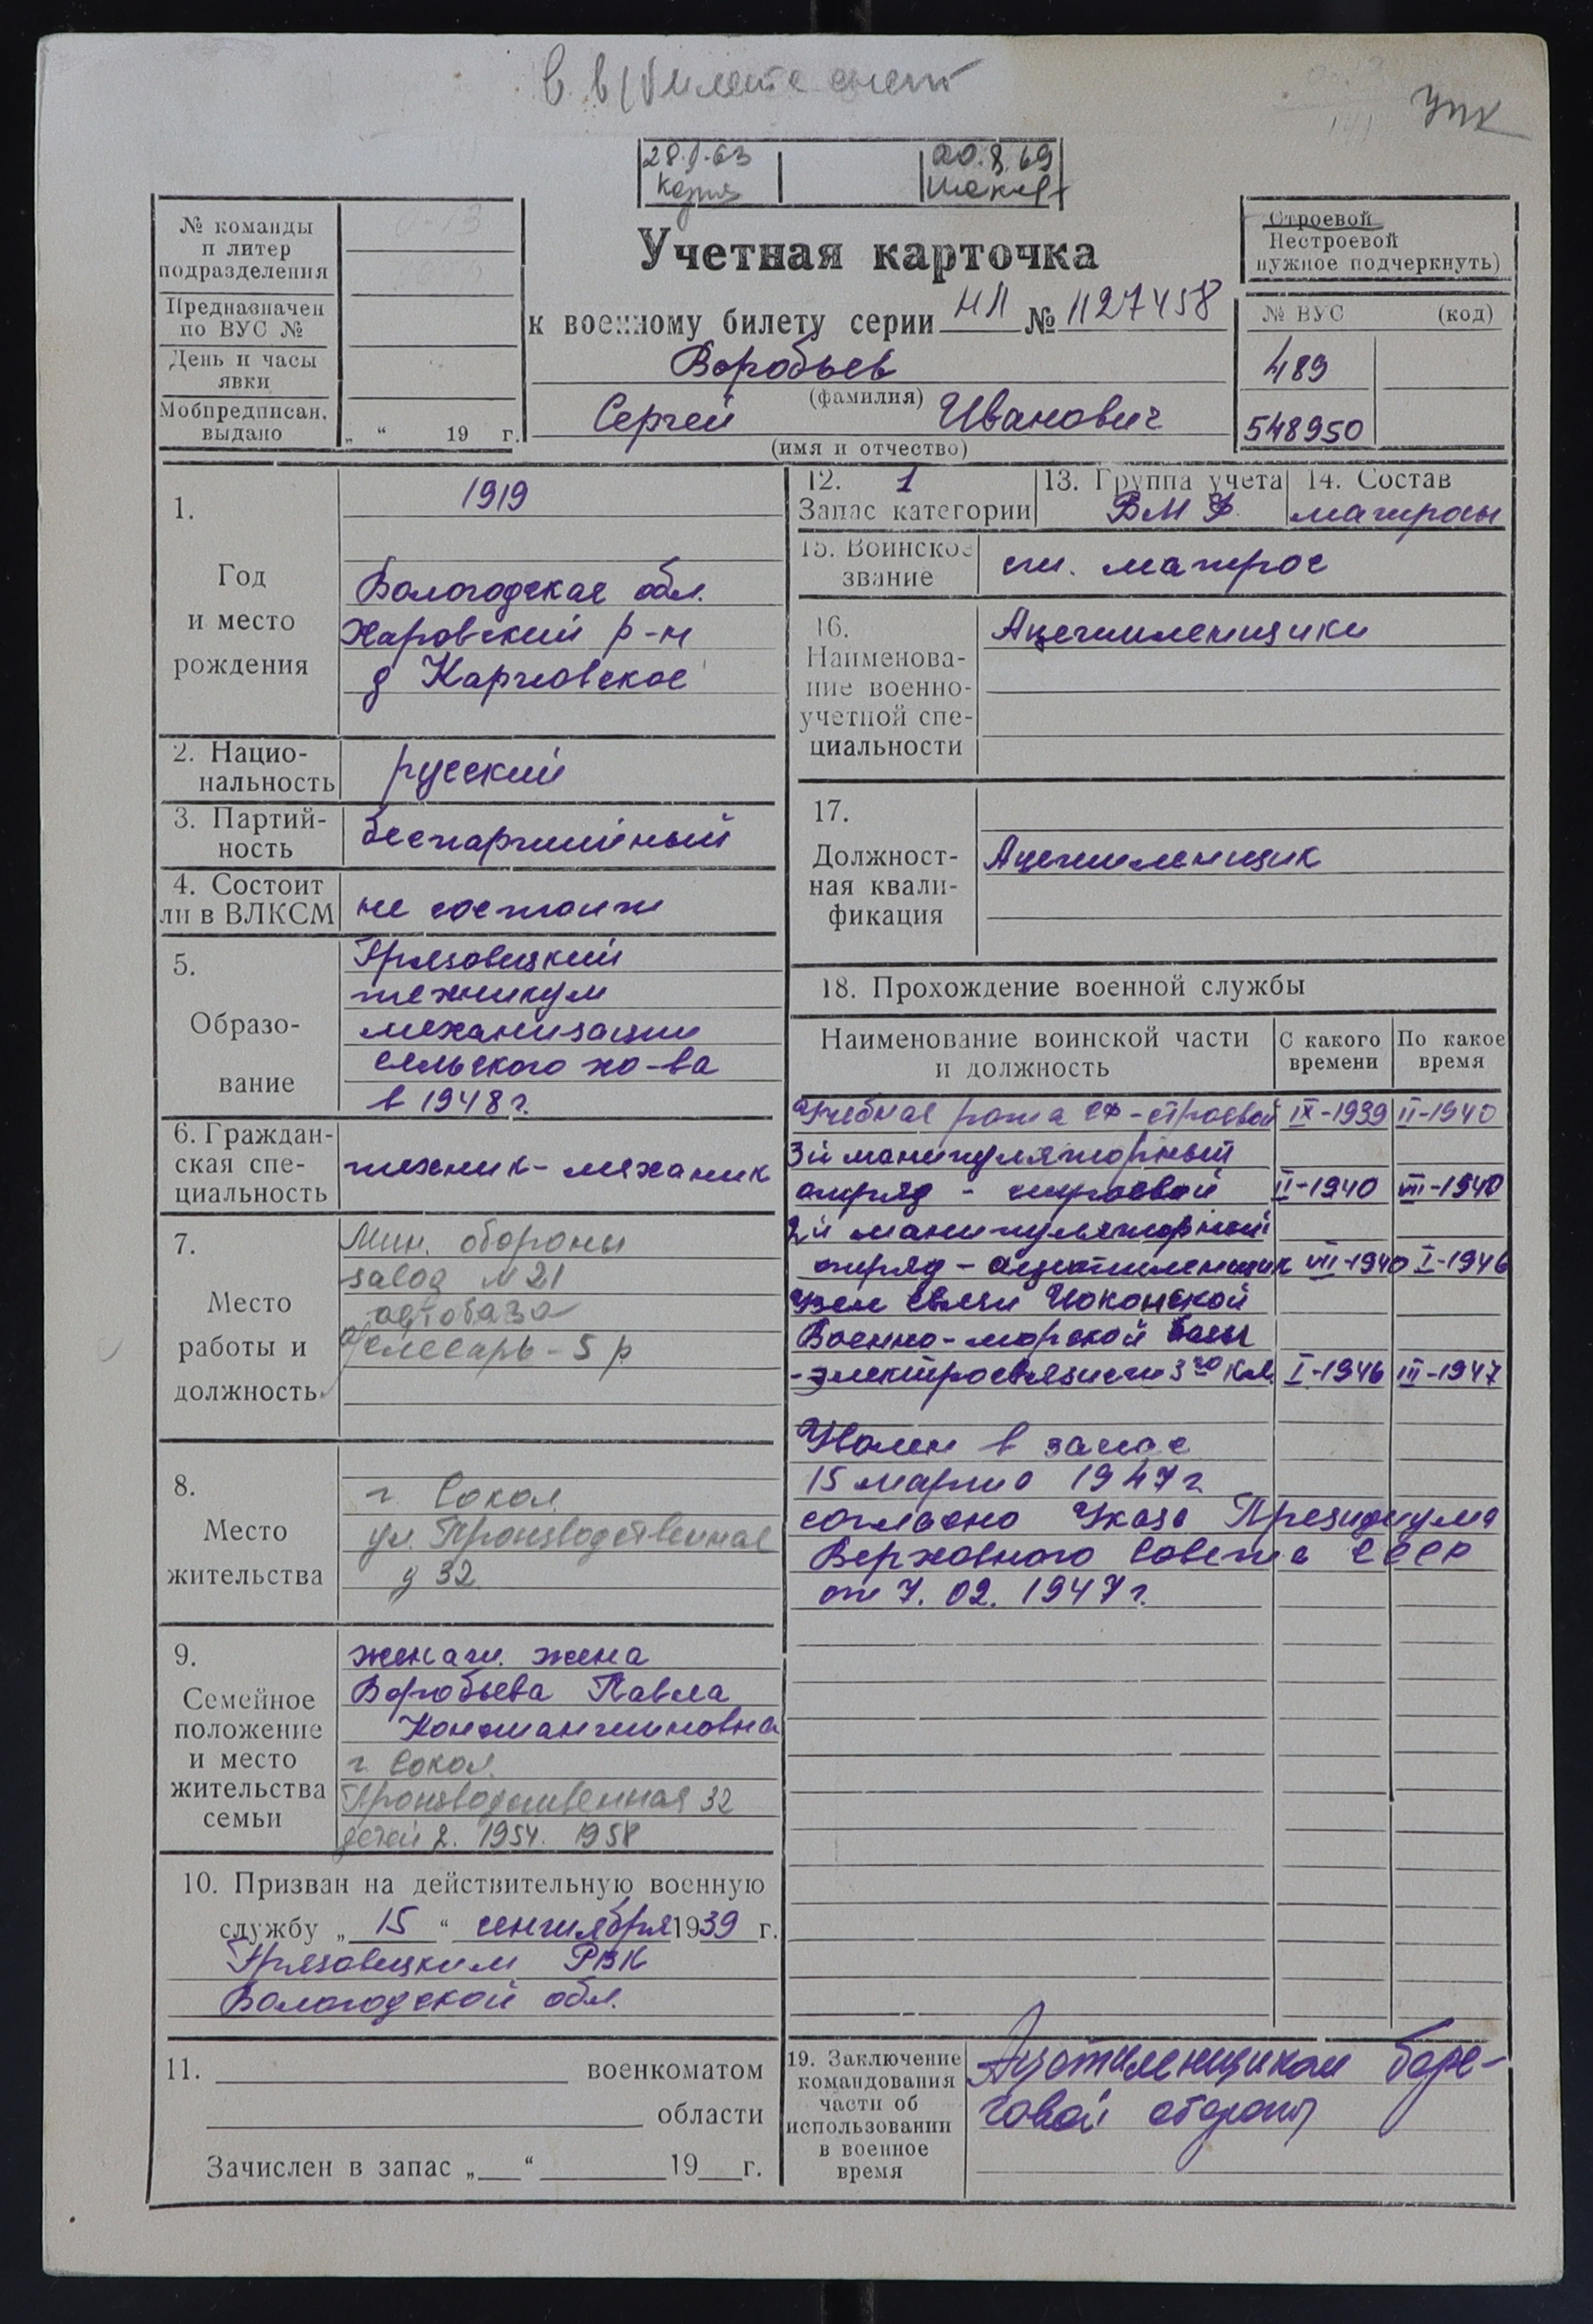 УПК
28.I.63
20.8.69
№ команды
и литер
подразделения
Предназначен
по ВУС №
День и часы
явки
Мобпредписан.
выдано
„ “ 19 г.
Учетная карточка
к военному билету серии НЛ № 1127458
Воробьев
(фамилия)
Сергей Иванович
(имя и отчество)
Строевой
Нестроевой
нужное подчеркнуть)
№ ВУС (код)
489
548950
1.
Год
и место
рождения
1919
Вологодская обл.
Харовский р-н
д
2. Нацио-
нальность
русский
3. Партий-
ность
беспартийный
4. Состоит
ли в ВЛКСМ
не состоит
5.
Образо-
вание
Грязовецкий
техникум
механизации
сельского хо-ва
в 1948 г.
6. Граждан-
ская спе-
циальность
техник-механик
7.
Место
работы и
должность
Мин. обороны
завод N 21
автобаза
слесарь - 5 р
8.
Место
жительства
г. Сокол
ул. Производственная
д 32
9.
Семейное
положение
и место
жительства
семьи
женат. жена
Воробьева Павла
Константиновна
г. Сокол.
Производственная 32
детей 2. 1954. 1958
10. Призван на действительную военную
службу „ 15 “ сентября 1939 г.
Грязовецким РВК
Вологодской обл.
11. военкоматом
области
Зачислен в запас „ “ 19 г.
12. 1
Запас категории
13. Группа учета
ВМФ
14. Состав
матросы
15. Воинское
звание
ст. матрос
16.
Наименова-
ние военно-
учетной спе-
циальности
Ацетиленщики
17.
Должност-
ная квали-
фикация
Ацетиленщик
18. Прохождение военной службы
Наименование воинской части
и должность
С какого
времени
По какое
время
Учебная рота СФ - строевой IX-1939 II-1940
3й манипуляторный
отряд - строевой II-1940 VII-1940
2й манипуляторный
отряд - ацетиленщик VII-1940 I-1946
Узел связи Иоконской
Военно-морской базы
- электросвязист 3го кл. I-1946 III-1947
Уволен в запас
15 марта 1947 г
согласно Указа Президиума
Верховного Совета СССР
от 7. 02. 1947 г.
19. Заключение
командования
части об
использовании
в военное
время
Ацетиленщиком бере-
говой обороны